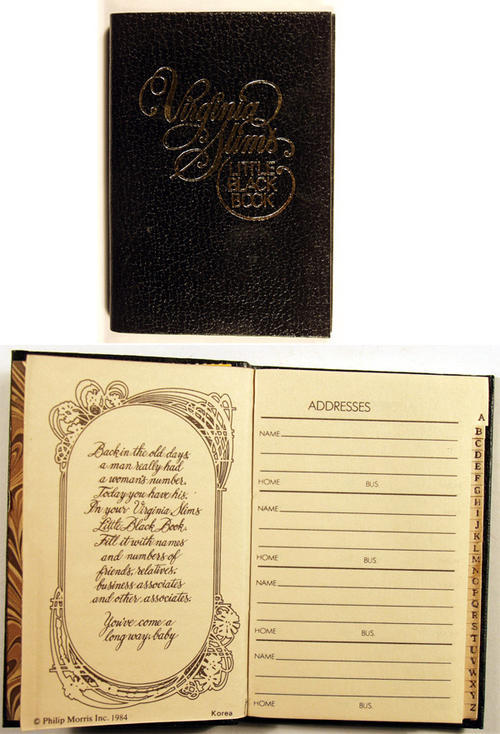 Virginia
Slims
LITTLE
BLACK
BOOK
Back in the old days
a man really had
a woman's number.
Today you have his.
In your Virginia Slims
Little Black Book.
Fill it with names
and numbers of
friends, relatives,
business associates
and other associates.
You've come a
long way, baby
© Philip Morris Inc. 1984
Korea
ADDRESSES
NAME
HOME BUS.
NAME
HOME BUS.
NAME
HOME BUS.
NAME
HOME BUS.
A
B
C
D
E
F
G
H
I
J
K
L
M
N
O
P
Q
R
S
T
U
V
W
X
Y
Z